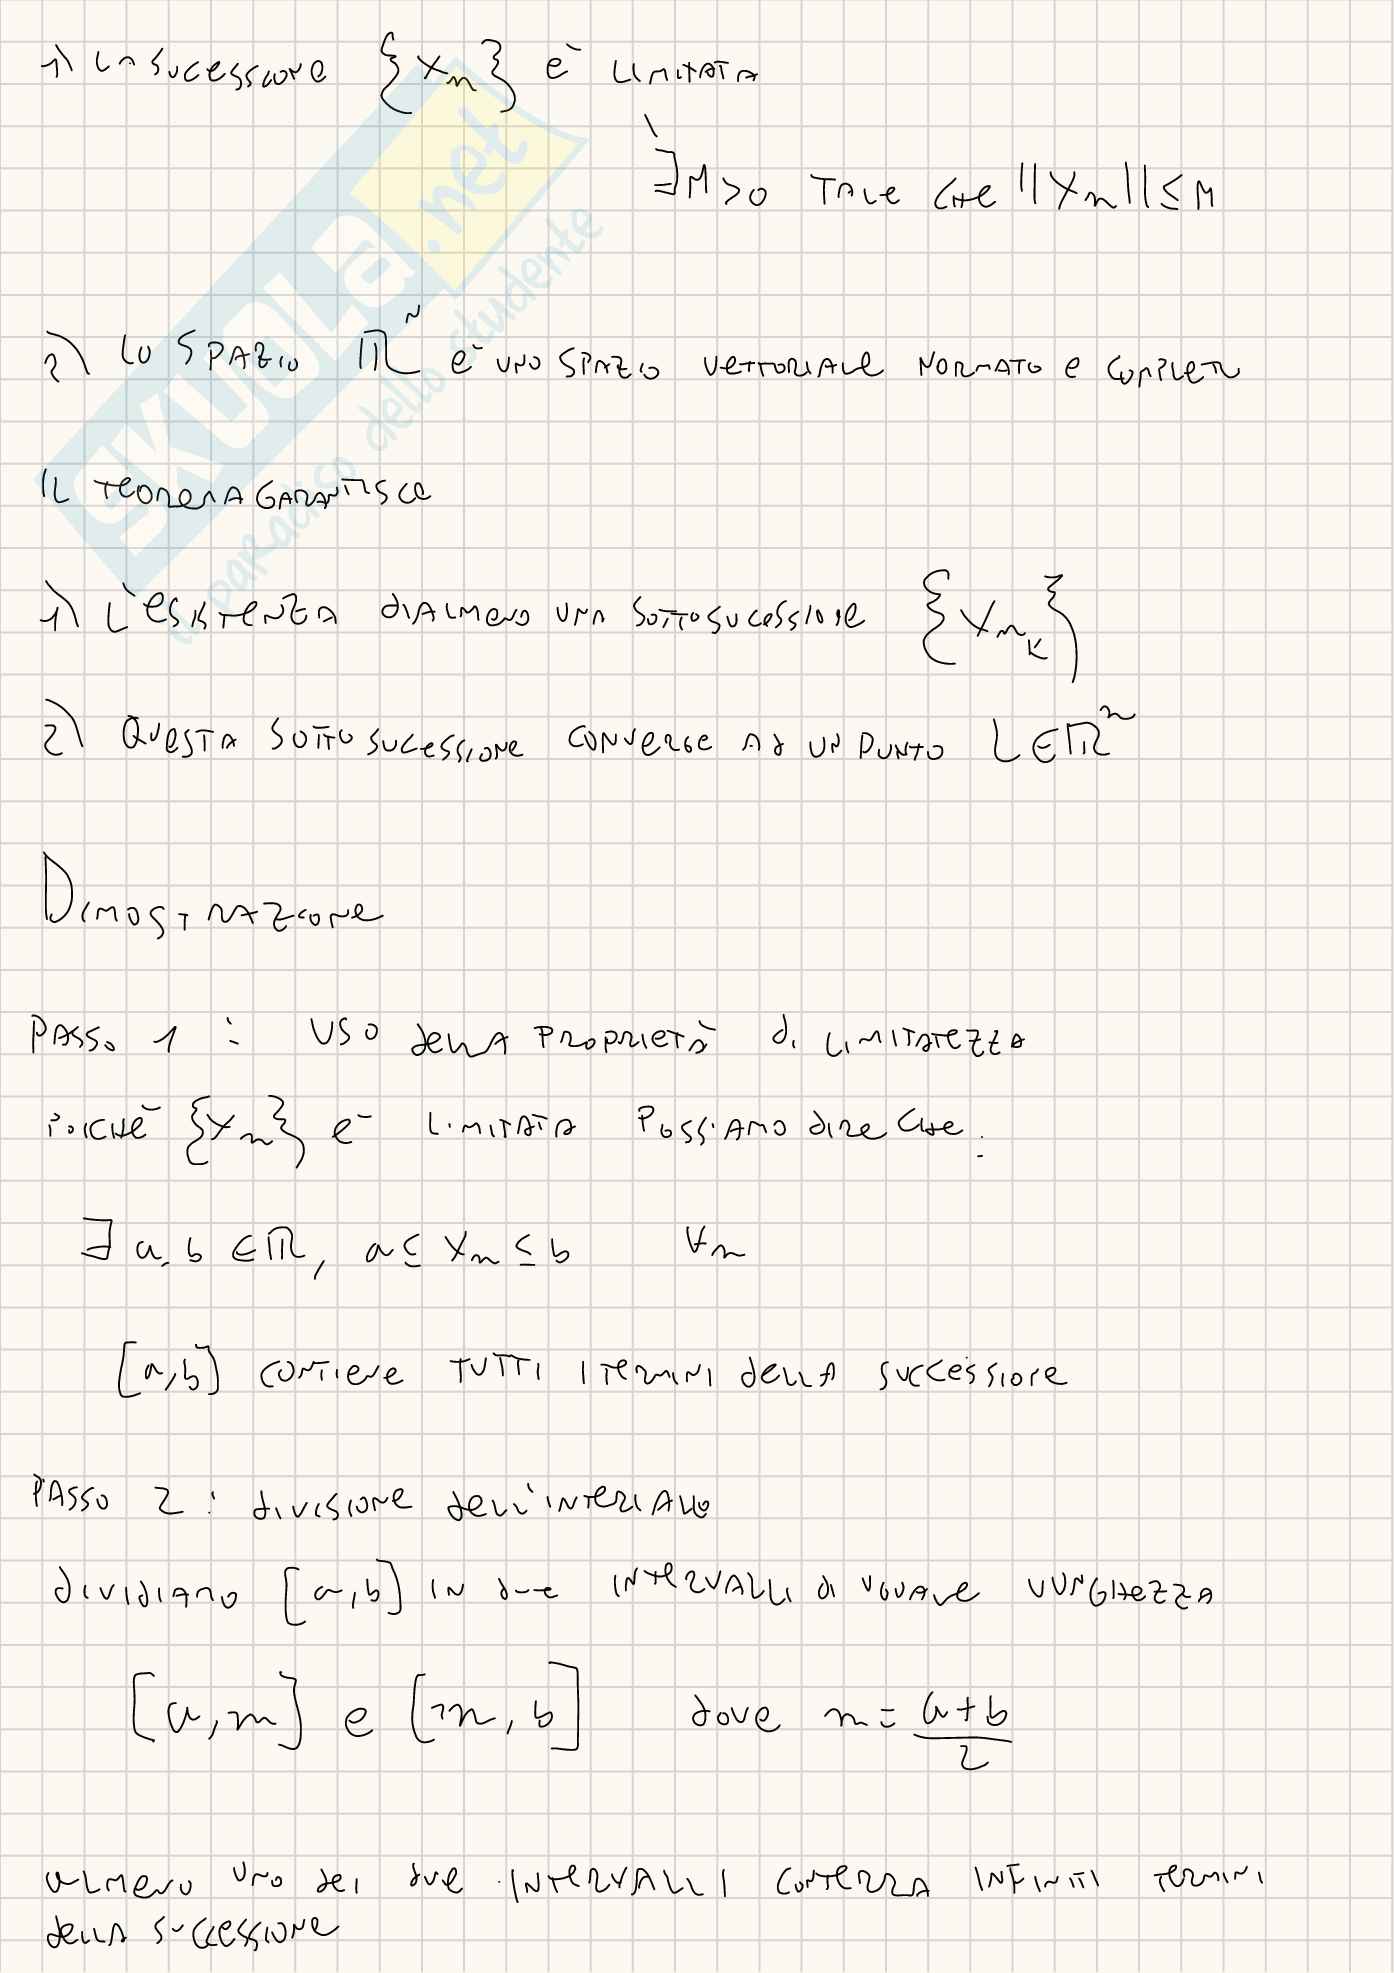 1) LA SUCESSIONE {Xn} è LIMITATA
∃M>0 TALE CHE ||Xn|| ≤ M
2) LO SPAZIO ℝ^N è UNO SPAZIO VETTORIALE NORMATO e COMPLETO
IL TEOREMA GARANTISCE
1) L'ESISTENZA DI ALMENO UNA SOTTOSUCESSIONE {Xn_k}
2) QUESTA SOTTOSUCESSIONE CONVERGE AD UN PUNTO L∈ℝ^n
DIMOSTRAZIONE
PASSO 1 : USO DELLA PROPRIETÀ DI LIMITATEZZA
POICHÈ {Xn} è LIMITATA POSSIAMO DIRE CHE:
∃ a,b ∈ℝ, a ≤ Xn ≤ b ∀n
[a,b] CONTIENE TUTTI I TERMINI DELLA SUCCESSIONE
PASSO 2 : DIVISIONE DELL'INTERVALLO
DIVIDIAMO [a,b] IN DUE INTERVALLI DI UGUALE LUNGHEZZA
[a,m] e [m,b] DOVE m = (a+b)/2
ALMENO UNO DEI DUE INTERVALLI CONTERRA INFINITI TERMINI
DELLA SUCCESSIONE
SKUOLA.net
il paradiso dello studente